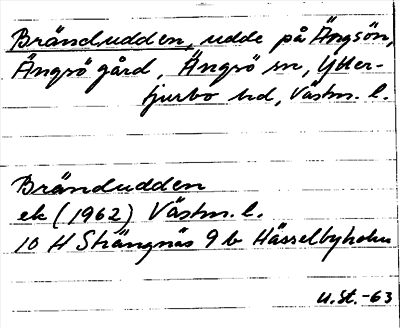 Brändudden, udde på Ängsön,
Ängsö gård, Ängsö sn, Ytter-
tjurbo hd, Västm. l.
Brändudden
ek (1962) Västm. l.
10 H Strängnäs 9 b Hässelbyholm
U.St.-63